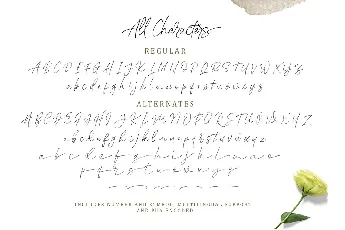 All Characters
REGULAR
A B C D E F G H I J K L M N O P Q R S T U V W X Y Z
a b c d e f g h i j k l m n o p q r s t u v w x y z
ALTERNATES
A B C D E F G H I J K L M N O P Q R S T U V W X Y Z
a b c d e f g h i j k l m n o p q r s t u v w x y z
a b c d e f g h i j k l m n o
p q r s t u v w x y z
INCLUDES NUMBER AND SYMBOL, MULTILINGUAL SUPPORT
AND PUA ENCODED